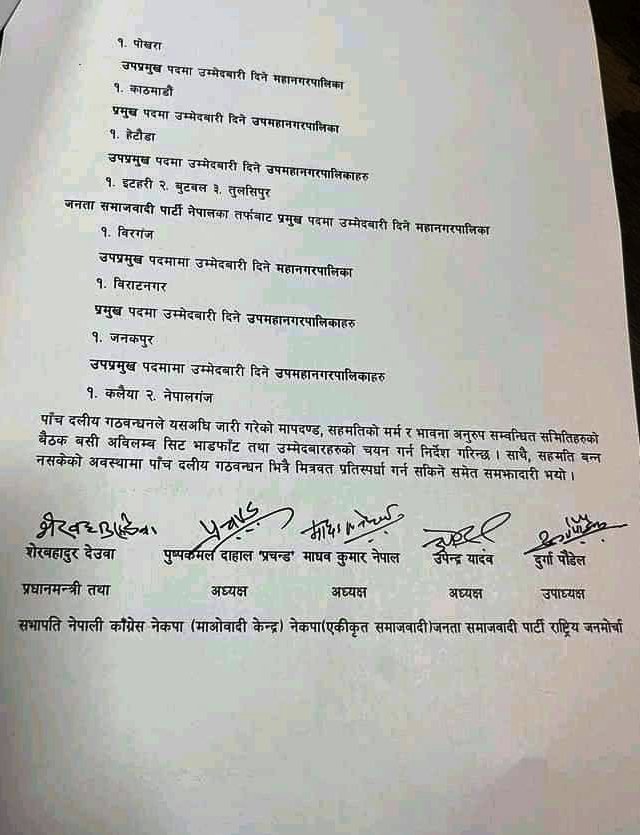 १. पोखरा
उपप्रमुख पदमा उम्मेदबारी दिने महानगरपालिका
१. काठमाडौं
प्रमुख पदमा उम्मेदबारी दिने उपमहानगरपालिका
१. हेटौडा
उपप्रमुख पदमा उम्मेदबारी दिने उपमहानगरपालिकाहरु
१. इटहरी २. बुटबल ३. तुलसिपुर
जनता समाजवादी पार्टी नेपालका तर्फबाट प्रमुख पदमा उम्मेदबारी दिने महानगरपालिका
१. बिरगंज
उपप्रमुख पदमामा उम्मेदबारी दिने महानगरपालिका
१. बिराटनगर
प्रमुख पदमा उम्मेदबारी दिने उपमहानगरपालिकाहरु
१. जनकपुर
उपप्रमुख पदमामा उम्मेदबारी दिने उपमहानगरपालिकाहरु
१. कलैया २. नेपालगंज
पाँच दलीय गठवन्धनले यसअघि जारी गरेको मापदण्ड, सहमतिको मर्म र भावना अनुरुप सम्वन्धित समितिहरुको
बैठक बसी अविलम्ब सिट भाडफाँट तथा उम्मेदबारहरुको चयन गर्न निर्देश गरिन्छ । साथै, सहमति बन्न
नसकेको अवस्थामा पाँच दलीय गठवन्धन भित्रै मित्रवत प्रतिस्पर्धा गर्न सकिने समेत समझदारी भयो ।
शेरबहादुर देउवा पुष्पकमल दाहाल 'प्रचन्ड' माधव कुमार नेपाल उपेन्द्र यादव दुर्गा पौडेल
प्रधानमन्त्री तथा अध्यक्ष अध्यक्ष अध्यक्ष उपाध्यक्ष
सभापति नेपाली काँग्रेस नेकपा (माओवादी केन्द्र) नेकपा(एकीकृत समाजवादी)जनता समाजवादी पार्टी राष्ट्रिय जनमोर्चा